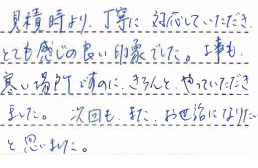 見積時より、丁寧に対応していただき
とても感じの良い印象でした。工事も
寒い場所ですのに、きちんとやっていただき
ました。次回も、また、お世話になりたい
と思いました。